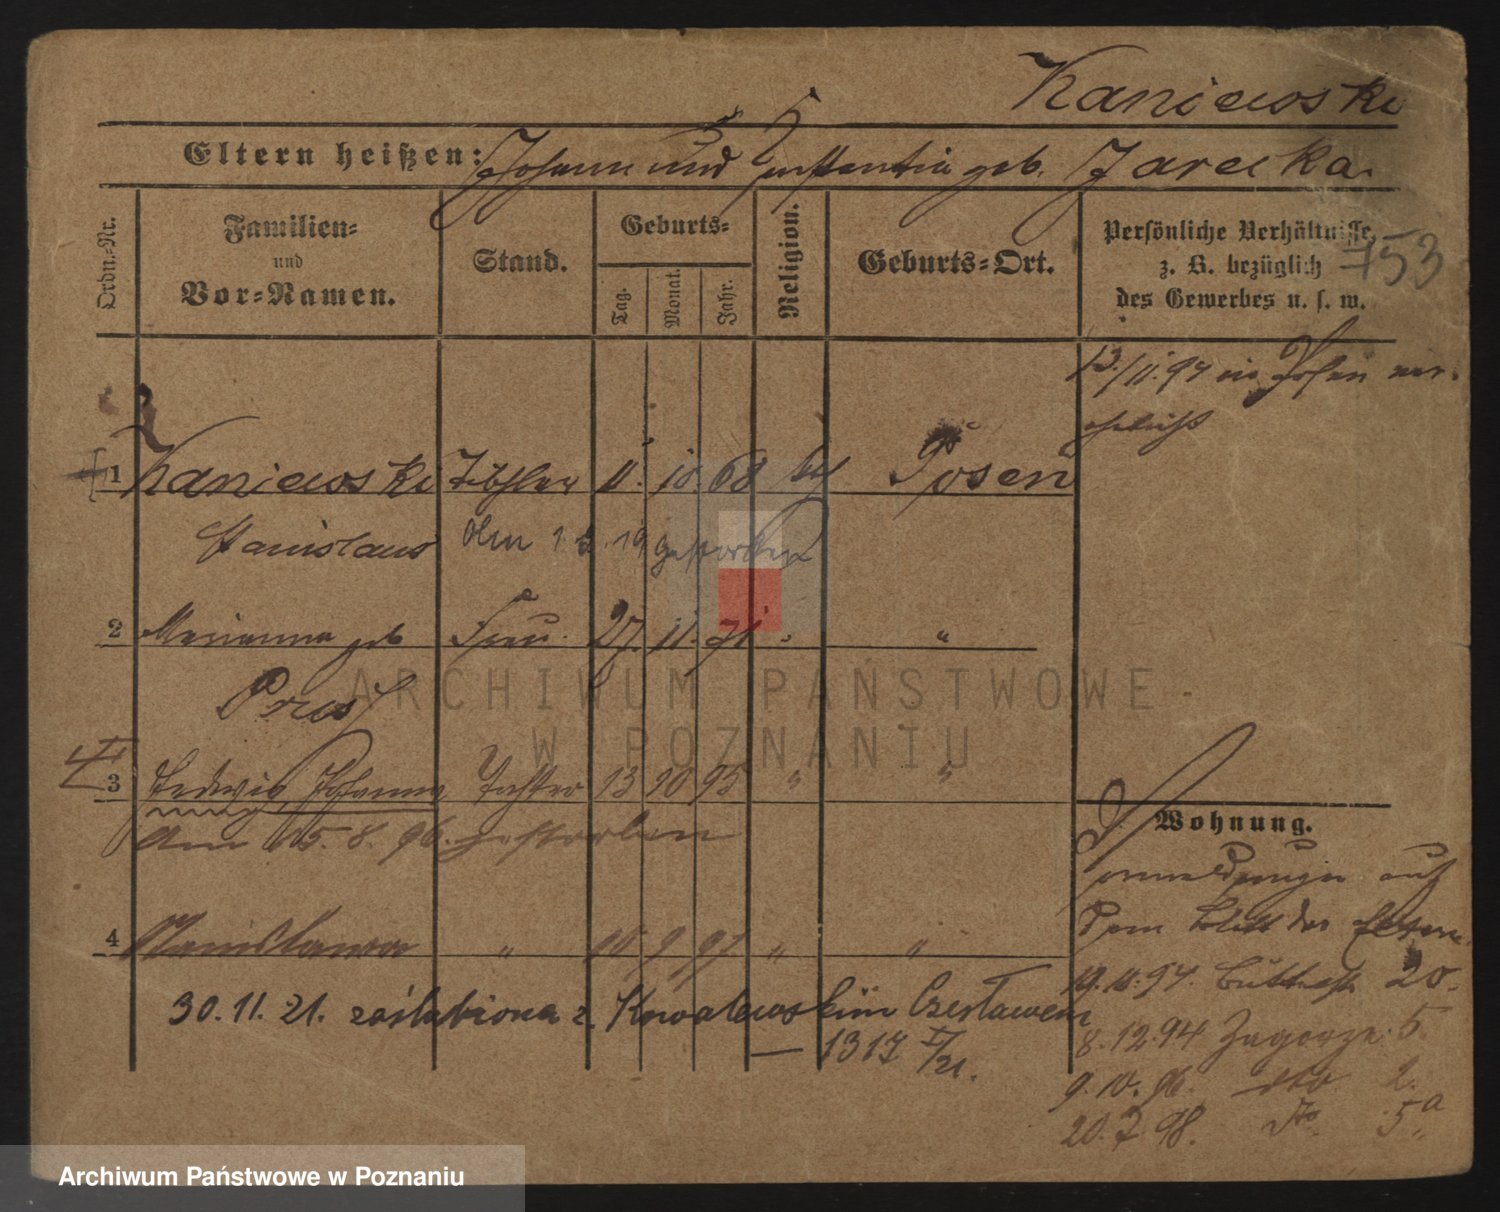 Kaniewski
Eltern heißen: Johann und Konstantia geb. Jarecka.
Ordn.-Nr.
Familien- und Vor-Namen.
Stand.
Geburts-
Tag. Monat. Jahr.
Religion.
Geburts-Ort.
Persönliche Verhältnisse, z. B. bezüglich des Gewerbes u. s. w.
753
13./11.94 in Posen ver-
ehelicht
1 Kaniewski Tischler 11. 10. 68 kth Posen
Stanislaus
den 1 2. 19 gestorben
2 Marianna geb Frau. 27. 11. 71 " "
3 Hedwig, Johanna Tochter 13 10 95 " "
am 15. 8. 96. gestorben
4 Stanislawa " 10 9 97 " "
30. 11. 21. zaślubiona z. Kowalewskim Czesławem
— 1317 I/21.
Wohnung.
Vormeldungen auf
dem Blatt der Eltern.
19. 11. 94. 20.
8. 12. 94 Zagorze 5.
9. 10. 96. dto 2.
20. 7. 98. dto 5a
ARCHIWUM PAŃSTWOWE
W POZNANIU
Archiwum Państwowe w Poznaniu